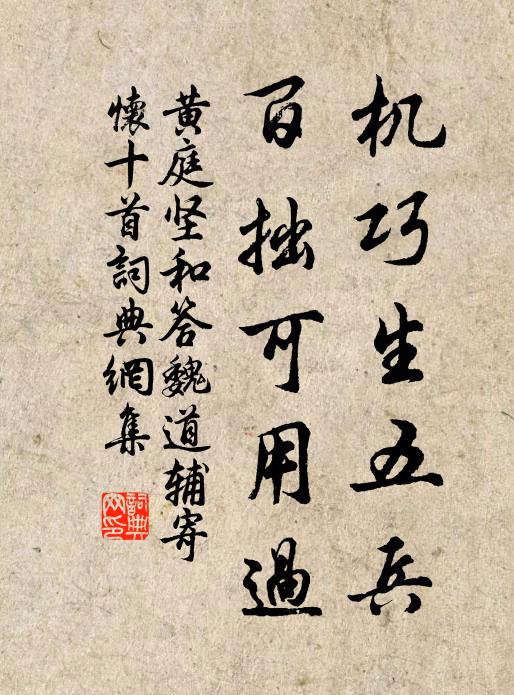 机巧生五兵
百拙可用過
黄庭坚和答魏道辅寄
懷十首詞典網集
詞典
网印